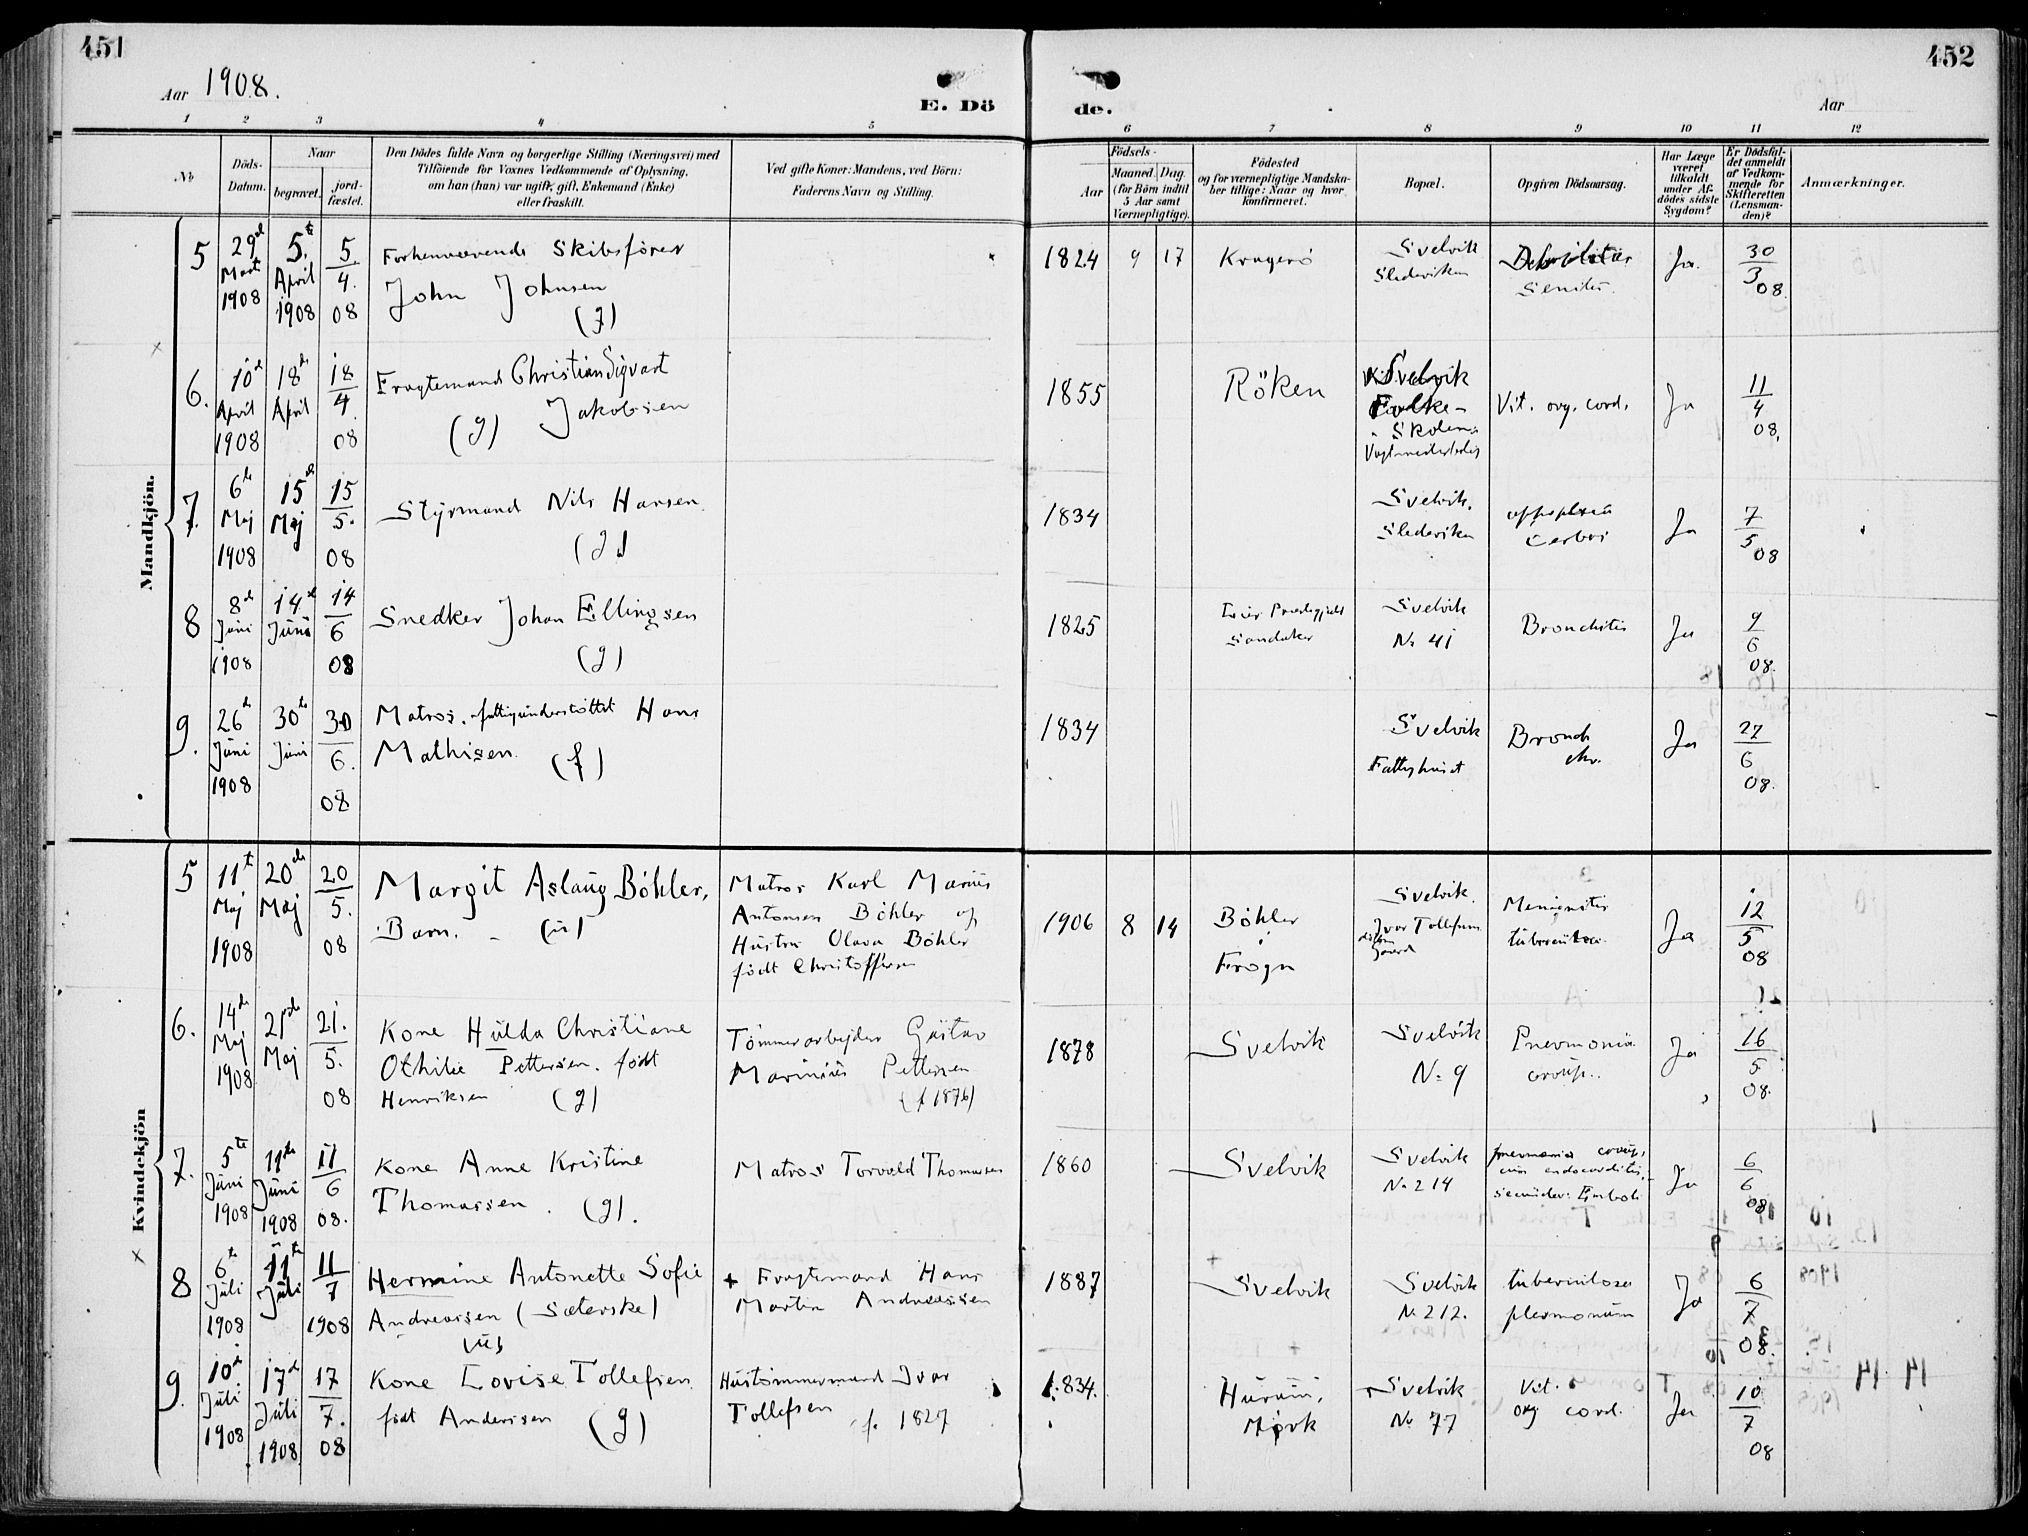 451
452
Aar 1908.
E. Dö de.
Aar
1 2 3 4 5 6 7 8 9 10 11 12
No
Döds-Datum.
Naar
begravet.
jord-fæstet.
Den Dödes fulde Navn og borgerlige Stilling (Næringsvei) med
Tilföiende for Voxnes Vedkommende af Oplysning,
om han (hun) var ugift, gift, Enkemand (Enke)
eller fraskilt.
Ved gifte Koner: Mandens, ved Börn:
Faderens Navn og Stilling.
Födsels-
Aar
Maaned. Dag.
(for Börn indtil
5 Aar samt
Værnepligtige).
Födested
og for værnepligtige Mandska-
ber tillige: Naar og hvor
konfirmeret.
Bopæl.
Opgiven Dödsaarsag.
Har Læge
været
tilkaldt
under Af-
dödes sidste
Sygdom?
Er Dödsfal-
det anmeldt
af Vedkom-
mende for
Skifteretten
(Lensman-
den)?
Anmærkninger.
Mandkjön.
5 29d Mart 1908 5te April 1908 5/4. 08
Forhenværende Skibsförer
John Johnsen
(g)
1824 9 17 Kragerö
Svelvik
Sledeviken
Debilitas
Senilis.
Ja. 30/3 08.
6. 10d April 1908 18de April 18/4. 08
Fragtemand Christian Sigvart
(g) Jakobsen
1855 Röken
Svelvik
Folke-
Skolen
Vit. org. cord.
Ja 11/4 08.
7. 6te Maj 1908 15de Maj 15/5. 08
Styrmand Nils Hansen
(g)
1834
Svelvik.
Slederiken
Ja 7/5 08
8 8de Juni 1908 14de Juni 14/6 08
Snedker Johan Ellingsen
(g)
1825
Sandaker
Svelvik
No 41
Bronchitis
Ja 9/6 08.
9. 26de Juni 1908 30te Juni 30/6. 08
Matros. fattigunderstöttet Hans
Mathisen. (f)
1834
Svelvik
Fattighuset
Bronch
chr.
Ja 27/6 08.
Kvindekjön
5 11te Maj 1908 20de Maj 20/5. 08
Margit Aslaug Böhler,
Barn. - (u)
Matros Karl Marius
Antonsen Böhler og
Hustru Olava Böhler
födt Christoffersen
1906 8 14 Böhler
Frogn
Svelvik.
Ivar Tollefsens
Gaard
Meningitis
tuberculosa.
Ja 12/5 08
6. 14de Maj 1908 21de Maj 21./5. 08
Kone Hulda Christiane
Othilie Pettersen. födt
Henriksen (g)
Tömmerarbejder Gustav
Marinius Pettersen
(f 1876)
1878 Svelvik
Svelvik
No 9
Pnevmonia
croup..
Ja 16/5 08.
7. 5te Juni 1908 11de Juni 1908 11/6 08.
Kone Anne Kristine
Thomassen. (g).
Matros Torvald Thomassen
1860 Svelvik
Svelvik
No 214
pnevmonia croup,
cum endocarditis,
Ja 6/6 08
8 6te Juli 1908 11te Juli 11/7 1908
Hermine Antonette Sofie
Andreassen (Sæterske)
(u)
+ Fragtemand Hans
Martin Andreassen
1887 Svelvik
Svelvik
No 212.
tuberculose
plevmonum
Ja 6/7 08.
9. 10de Juli 1908 17de Juli 1908 17/7. 08
Kone Lovise Tollefsen
födt Andersen (g)
Hustömmermand Ivar
Tollefsen f. 1827
1834. Hurum,
Mörk
Svelvik
No 77
Vit.
org. cord.
Ja 10/7 08